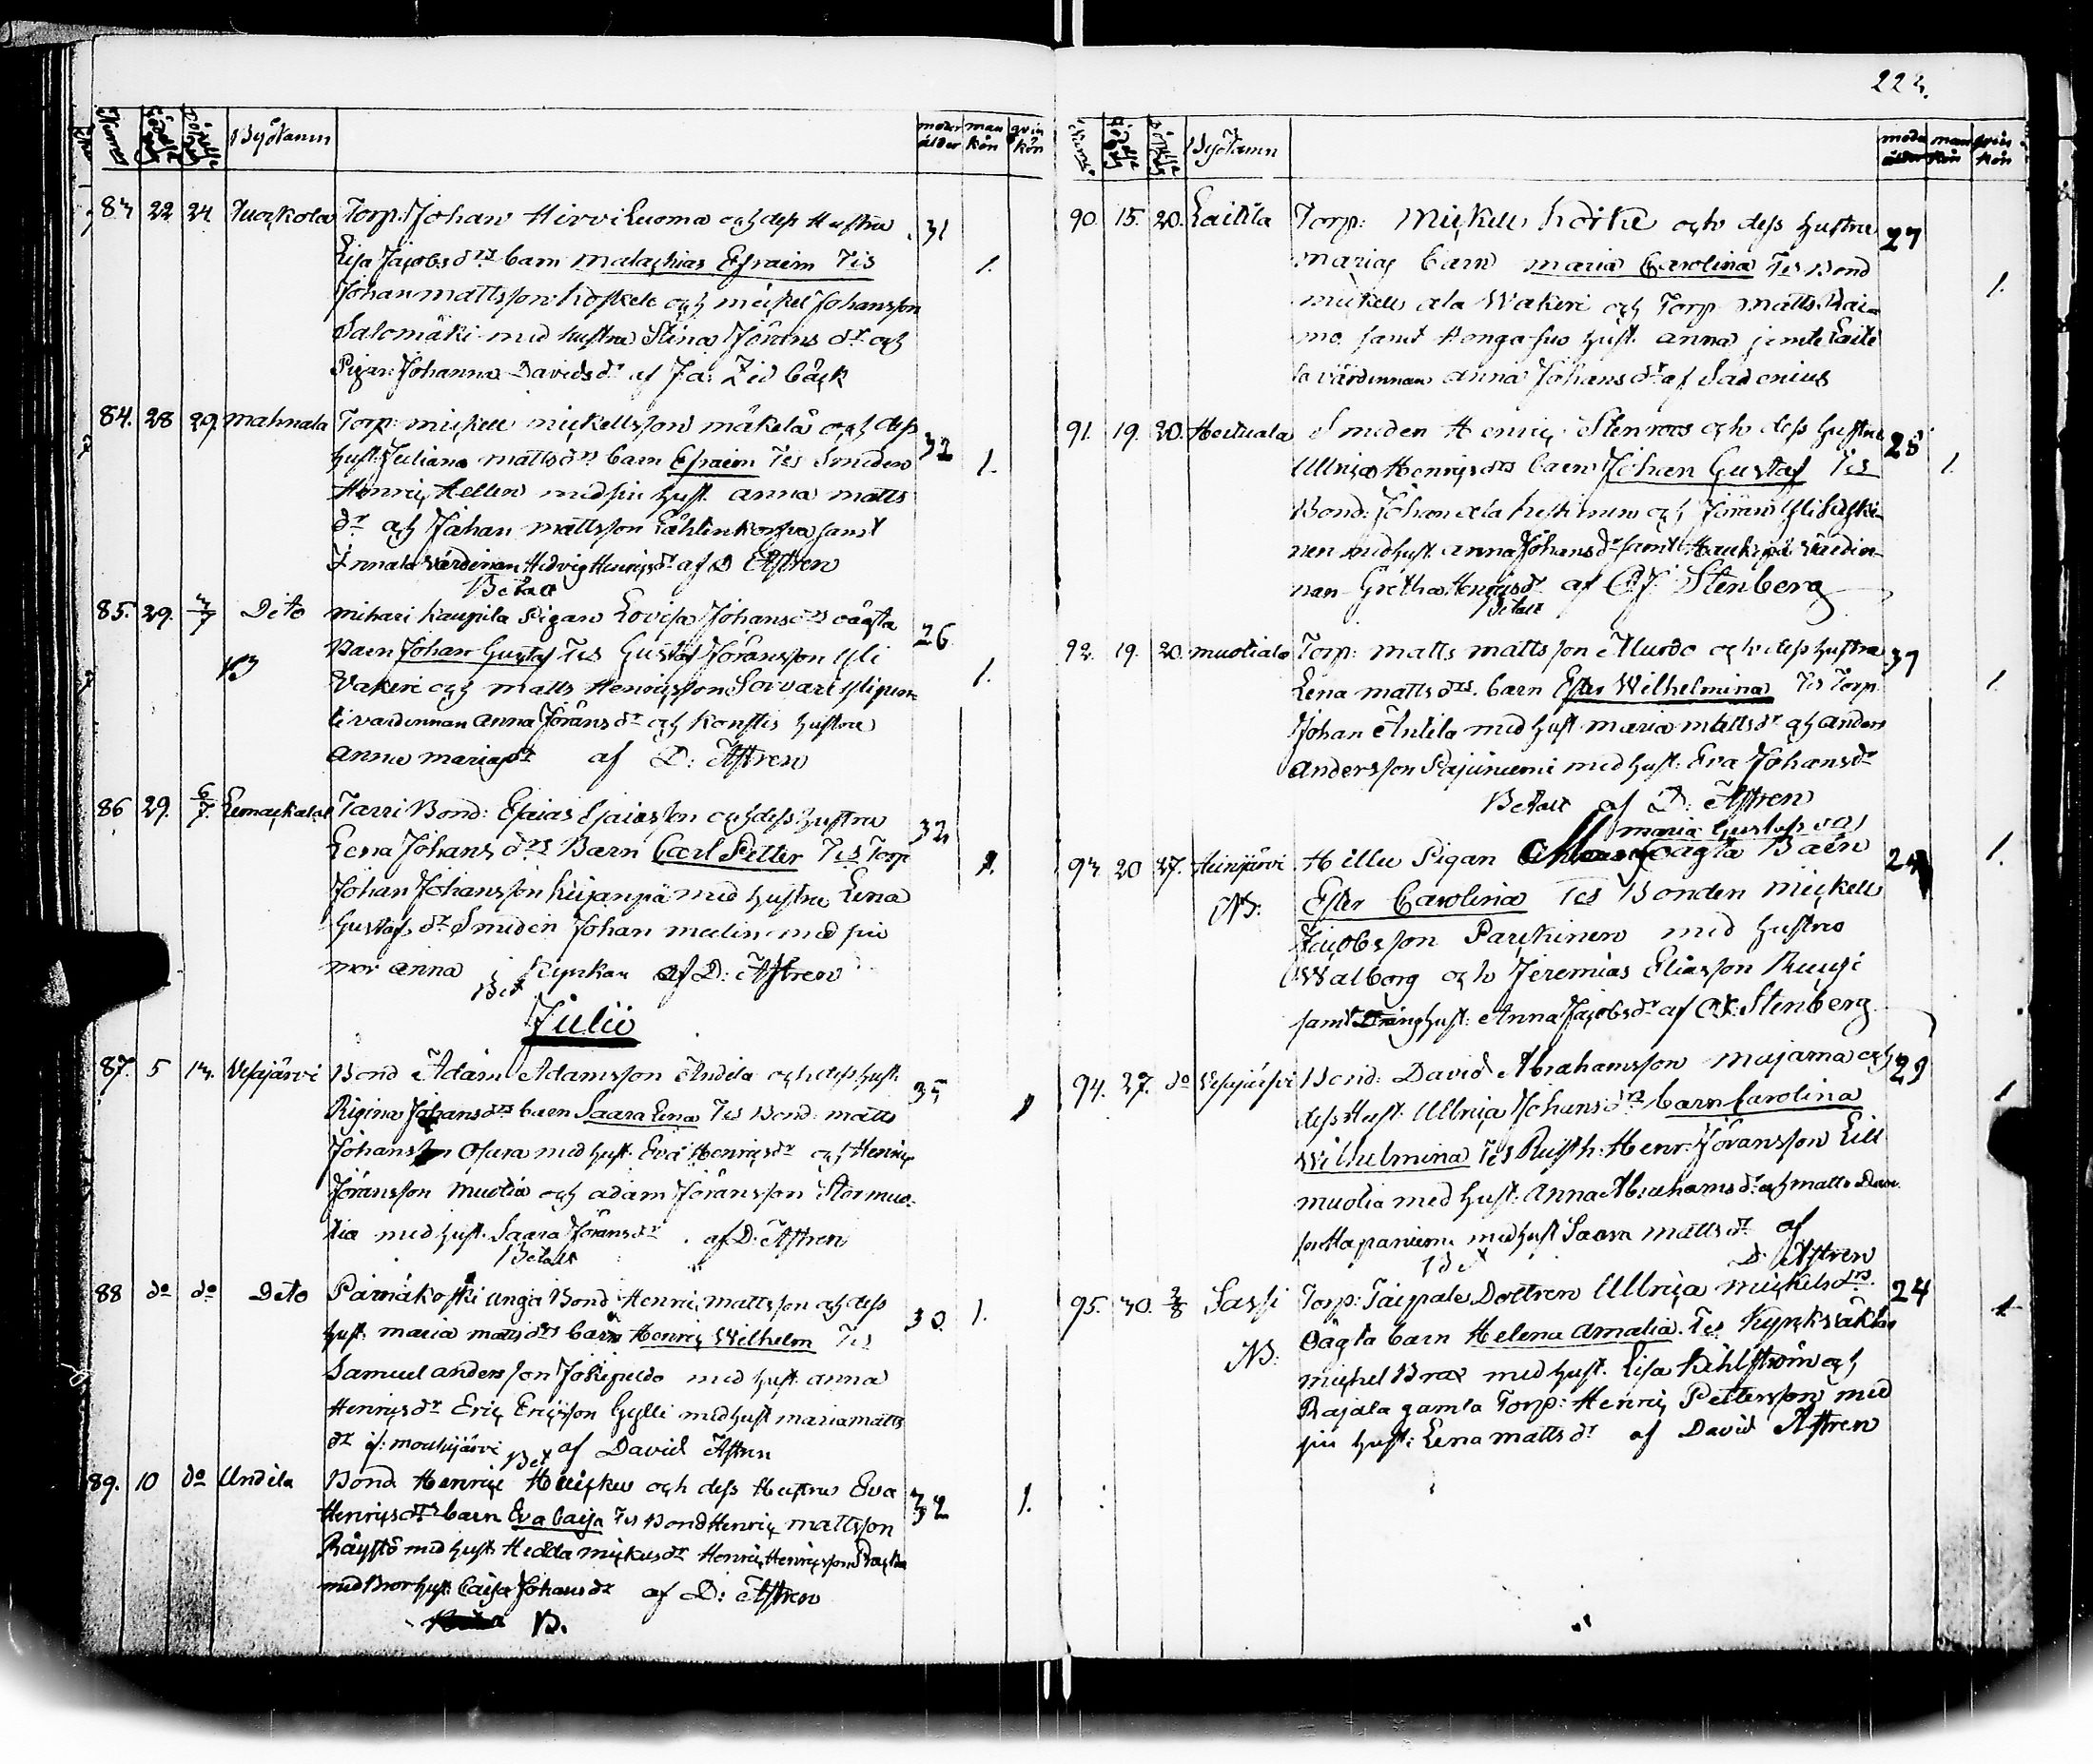 223.
Numer Födelse dag Döpelse dag Byönamn moder ålder man kön qvin kön
83 22 24 Tuorkola Torp: Johan Hirviluoma och dess Hustru 31
Lisa Jacobs drs barn Malachias Efraim Tes 1.
Johan Mattsson Koskele och Mickel Johansson
Salomäki med hustru Stina Jörans dr och
Pigan Johanna Davids dr af Ja: Zidbäck
84. 28 29. Mahnala Torp: Mickell Mickellsson Mäkelä och dess 32
hust: Juliana Matts drs barn Efraim Tes Smeden 1.
Henric Hellen med sin hust. Anna Matts
dr och Johan Mattsson samt
Värdinnan Hedvig Henrics dr af D Astren
Betalt
85. 29. 3/7 Dito Mihari Kaupila Pigan Lovisa Johans drs oägta 26
NB Barn Johan Gustaf Tes Gustaf Jöransson Yli
Vakeri och Matts Henricsson Sorvari 1.
värdinnan Anna Jörans dr och hustru
Anna Marias dr af D: Astren
86 29. 6/7. Tarri Bond: Esaias Esaiasson och dess hustru 32
Lena Johans drs Barn Carl Petter Tes Torp 1.
Johan Johansson Kujanpä med hustru Lena
Gustafs dr Smeden Johan Melin med sin
mor Anna i Kyrkan af D: Astren
Bet
Julii
87. 5 13. Vesajärvi Bond Adam Adamsson Andila och dess hust. 35
Rigina Johans drs barn Saara Lena Tes Bond: Matts 1
Johansson Osara med hust. Eva Henrics dr och Henric
Jöransson Muotia och Adam Jöransson Stormuo-
tia med hust. Saara Jörans dr. af D. Astren
Betalt
88 do do Dito Pärnäkoski unga Bond Henric Mattsson och dess 30. 1.
hust. Maria Matts drs barn Henric Wilhelm Tes
Samuel Andersson Jokipeldo med hust. Anna
Henrics dr Eric Ericsson Gylli med hust Maria Matts
dr if: Mouhijärvi af David Astren
Bet
89. 10 do Andila Bond Henric Heickus och dess Hustru Eva 32
Henrics drs barn Eva Caisa Tes Bond Henric Mattsson 1.
Räystö med hust. Hedda Mickels dr Henric Henricsson
med Mor hust. Caisa Johans dr af D: Astren
B.
90. 15. 20. Laitila Torp: Mickell Körke och dess hustru 27
Marias barn Maria Carolina Tes Bond
Mickell Ala Wakeri och Torp Matts Rai- 1.
mo samt Hongasuo hust. Anna jemte Laiti
la värdinnan Anna Johans dr af Sadenius
91. 19. 20. Heituala Smeden Henric Stenroos och dess hustru 28
Ullrica Henrics drs barn Johan Gustaf Tes 1.
Bond: Johan Ala Heiskinen och Jöran Yliheiski-
nen med hust. Anna Johans dr samt Haukipä värdin-
nan Gretha Henrics dr af C.J. Stenberg
Betalt
92. 19. 20. Muotiala Torp: Matts Mattsson Murdo och dess hustru 37
Lena Matts drs. barn Ester Wilhelmina Tes Torp. 1.
Johan Antila med hust. Maria Matts dr och Anders
Andersson Pajuniemi med hust: Eva Johans dr
Betalt af D: Astren
Maria Gustafs drs
93 20 27. Heinijärvi Hillu Pigan oägta Barn 24 1.
NB: Ester Carolina Tes Bonden Mickell
Jacobsson Parckinen med hustru
Walborg och Jeremias Eliasson Kuusi
samt Dräng hust: Anna Jacobs dr af C.J: Stenberg
94. 27. do Vesajärfvi Bond: David Abrahamsson Mujama och 29
dess Hust. Ullrica Johans drs barn Carolina 1
Wilhelmina Tes Rusth: Henr: Jöransson Lill
Muotia med hust: Anna Abrahams dr och Matts Dan
son Hapaniemi med hust Saara Matts dr af
Bet D. Astren
95. 30. 2/8 Sassi Torp: Taipale Dottren Ullrica Mickels drs. 24
NB: Oägta barn Helena Amalia. Tes Kyrckväktar 1
Michel Brax med hust. Lisa Kihlström och
Rajala gamla Torp: Henric Pettersson med
sin hust: Lena Matts dr af David Astren